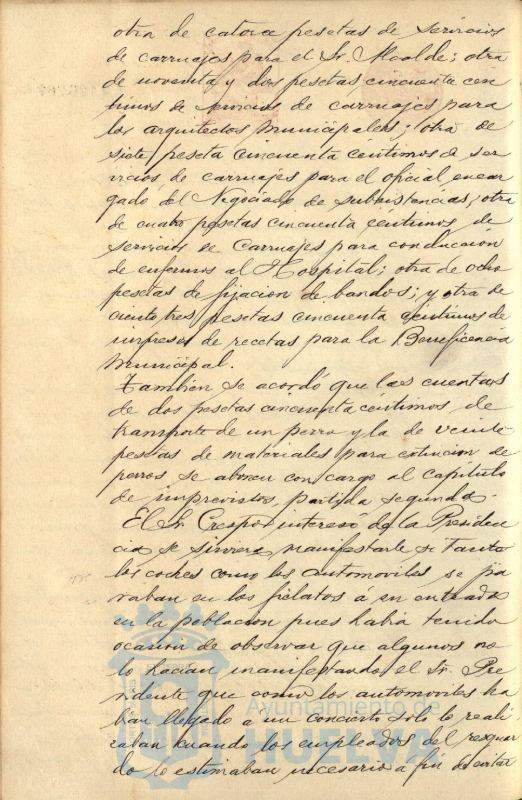 otra de catorce pesetas de servicios
de carruajes para el Sr. Alcalde; otra
de noventa y dos pesetas cincuenta cen
timos de servicios de carruajes para
los arquitectos municipales; otra de
siete peseta cincuenta centimos de ser
vicios de carruajes para el oficial encar
gado del Negociado de subsistencias; otra
de cuatro pesetas cincuenta centimos de
servicios de carruajes para conduccion
de enfermos al Hospital; otra de ocho
pesetas de fijacion de bandos; y otra de
ciento tres pesetas cincuenta centimos de
impresos de recetas para la Beneficencia
municipal.
Tambien se acordó que las cuentas
de dos pesetas cincuenta centimos de
transporte de un perro y la de veinte
pesetas de materiales para extincion de
perros se abonen con cargo al capitulo
de imprevistos, partida segunda.
El Sr. Crespo interesó de la Presiden
cia se sirviera manifestarle si tanto
los coches como los automoviles se pa
raban en los fielatos á su entrada
en la poblacion pues habia tenido
ocasion de observar que algunos no
lo hacian manifestando el Sr. Pre
sidente que como los automoviles ha
bian llegado a un concierto solo lo reali
zaban cuando los empleados del resguar
do lo estimaban necesario a fin de evitar
Ayuntamiento de
HUELVA